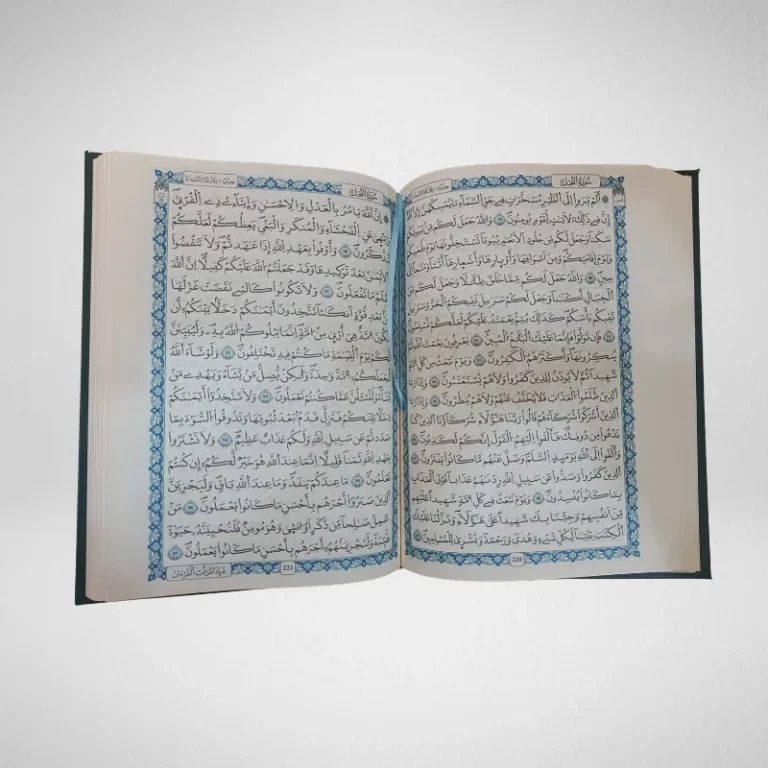 سورة النحل
ألم يروا إلى الطير مسخرات في جو السماء ما يمسكهن إلا الله
إن في ذلك لآيات لقوم يومنون والله جعل لكم من بيوتكم
سكنا وجعل لكم من جلود الأنعام بيوتا تستخفونها يوم ظعنكم
ويوم إقامتكم ومن أصوافها وأوبارها وأشعارها أثاثا ومتاعا إلى
حين والله جعل لكم مما خلق ظلالا وجعل لكم من
الجبال أكنانا وجعل لكم سرابيل تقيكم الحر وسرابيل
تقيكم بأسكم كذلك يتم نعمته عليكم لعلكم تسلمون
فإن تولوا فإنما عليك البلاغ المبين يعرفون نعمت الله ثم
ينكرونها وأكثرهم الكافرون ويوم نبعث من كل أمة
شهيدا ثم لا يوذن للذين كفروا ولا هم يستعتبون وإذا رءا
الذين ظلموا العذاب فلا يخفف عنهم ولا هم ينظرون وإذا رءا
الذين أشركوا شركاءهم قالوا ربنا هؤلاء شركاؤنا الذين كنا
ندعوا من دونك فألقوا إليهم القول إنكم لكاذبون
وألقوا إلى الله يومئذ السلم وضل عنهم ما كانوا يفترون
الذين كفروا وصدوا عن سبيل الله زدناهم عذابا فوق العذاب
بما كانوا يفسدون ويوم نبعث في كل أمة شهيدا عليهم
من أنفسهم وجئنا بك شهيدا على هؤلاء ونزلنا عليك
الكتاب تبيانا لكل شيء وهدى ورحمة وبشرى للمسلمين
220
سورة النحل
إن الله يامر بالعدل والإحسان وإيتاء ذي القربى
وينهى عن الفحشاء والمنكر والبغي يعظكم لعلكم
تذكرون وأوفوا بعهد الله إذا عاهدتم ولا تنقضوا
الأيمان بعد توكيدها وقد جعلتم الله عليكم كفيلا إن الله
يعلم ما تفعلون ولا تكونوا كالتي نقضت غزلها
من بعد قوة أنكاثا تتخذون أيمانكم دخلا بينكم أن
تكون أمة هي أربى من أمة إنما يبلوكم الله به وليبينن
لكم يوم القيامة ما كنتم فيه تختلفون ولو شاء الله
لجعلكم أمة واحدة ولكن يضل من يشاء ويهدي من
يشاء ولتسئلن عما كنتم تعملون ولا تتخذوا أيمانكم
دخلا بينكم فتزل قدم بعد ثبوتها وتذوقوا السوء بما
صددتم عن سبيل الله ولكم عذاب عظيم ولا تشتروا
بعهد الله ثمنا قليلا إنما عند الله هو خير لكم إن كنتم
تعلمون ما عندكم ينفد وما عند الله باق وليجزين
الذين صبروا أجرهم بأحسن ما كانوا يعملون من
عمل صالحا من ذكر أو أنثى وهو مومن فلنحيينه حياة
طيبة ولنجزينهم أجرهم بأحسن ما كانوا يعملون
221
فإذا قرأت القرءان